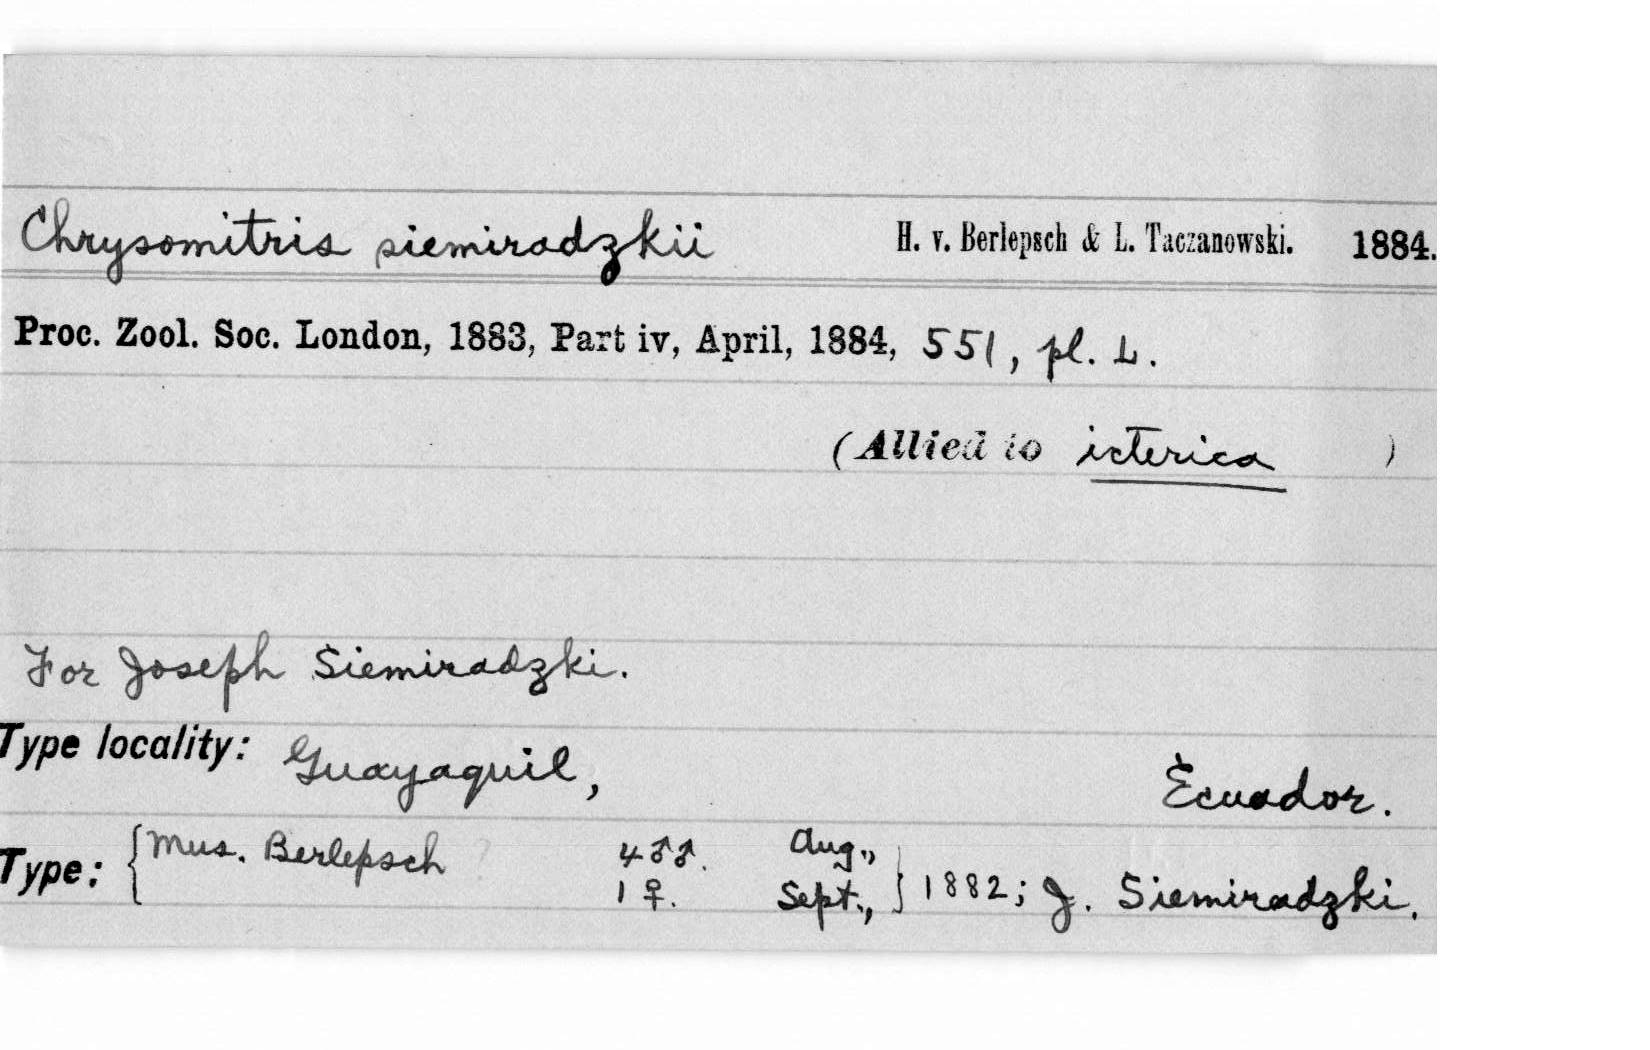 Chrysomitris siemiradzkii H. v. Berlepsch & L. Taczanowski. 1884.
Proc. Zool. Soc. London, 1883, Part iv, April, 1884, 551, pl. L.
(Allied to icterica )
For Joseph Siemiradzki.
Type locality: Guayaquil, Ecuador.
Type: { Mus. Berlepsch ? 4 ♂♂. Aug.,
1 ♀. Sept., } 1882; J. Siemiradzki.